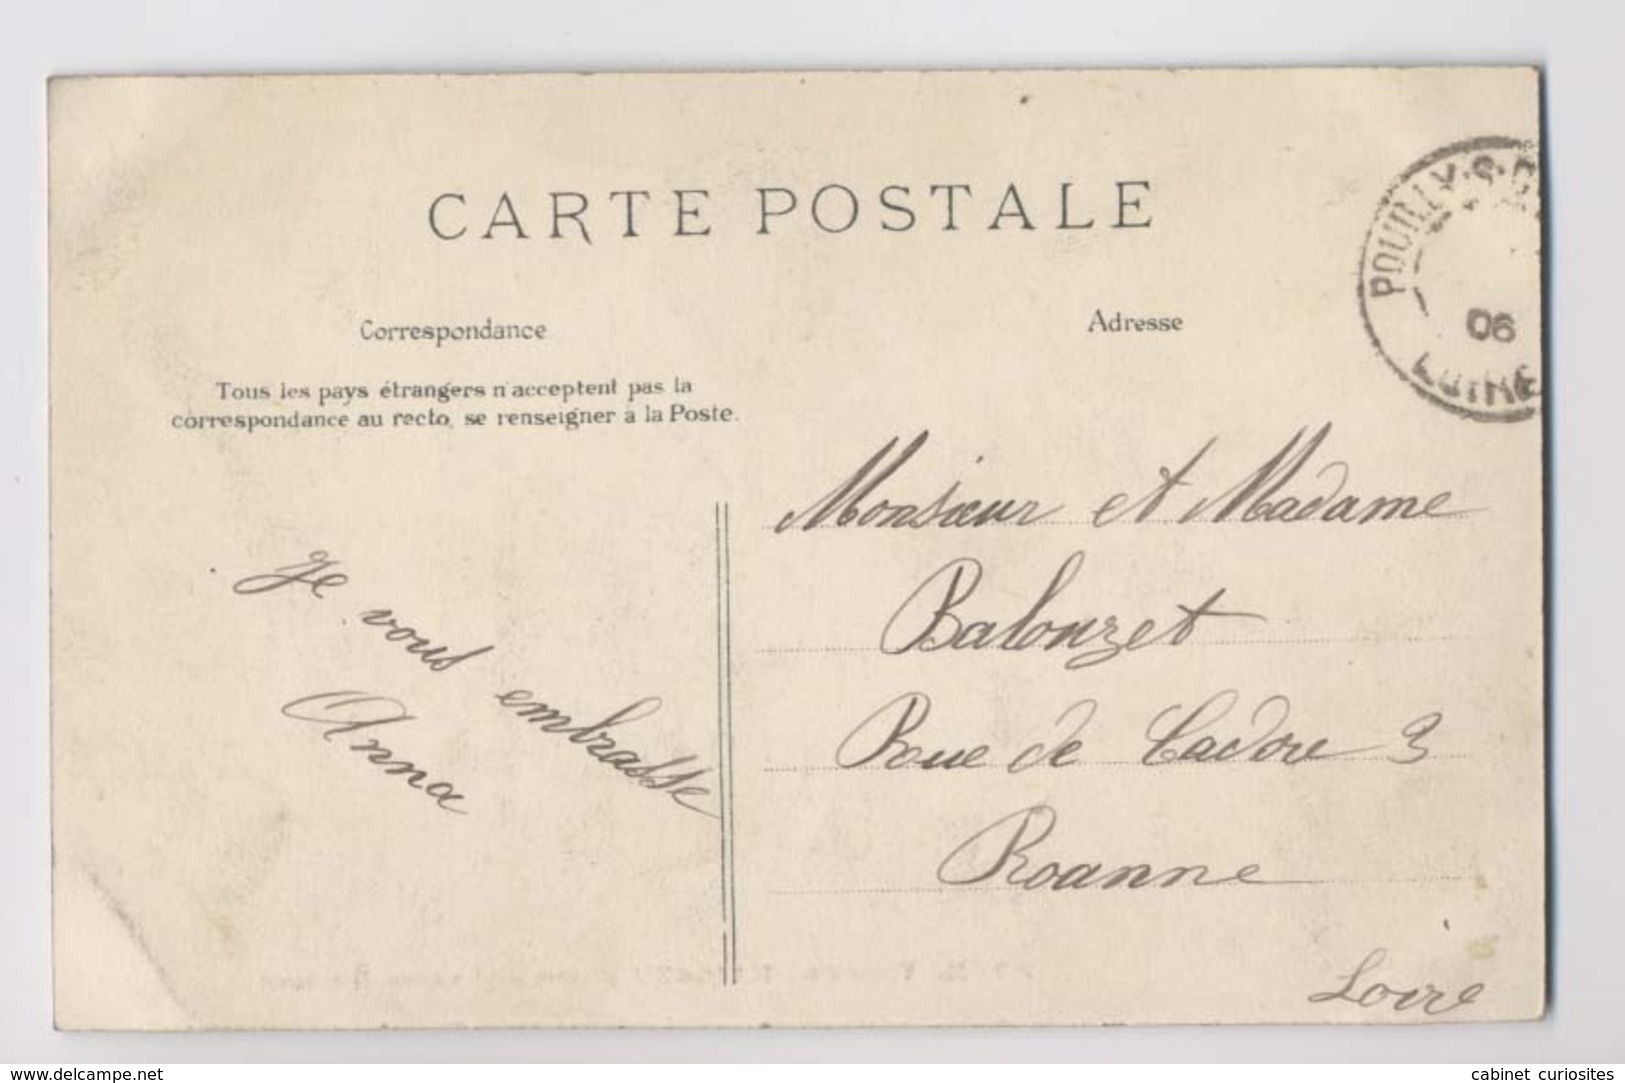 CARTE POSTALE
Correspondance
Adresse
Tous les pays étrangers n'acceptent pas la
correspondance au recto, se renseigner à la Poste.
POUILLY-S-
06
LOIRE
Monsieur et Madame
Balouzet
Roue de Cadore 3
Roanne
Loire
Je vous embrasse
Anna
www.delcampe.net
cabinet curiosites